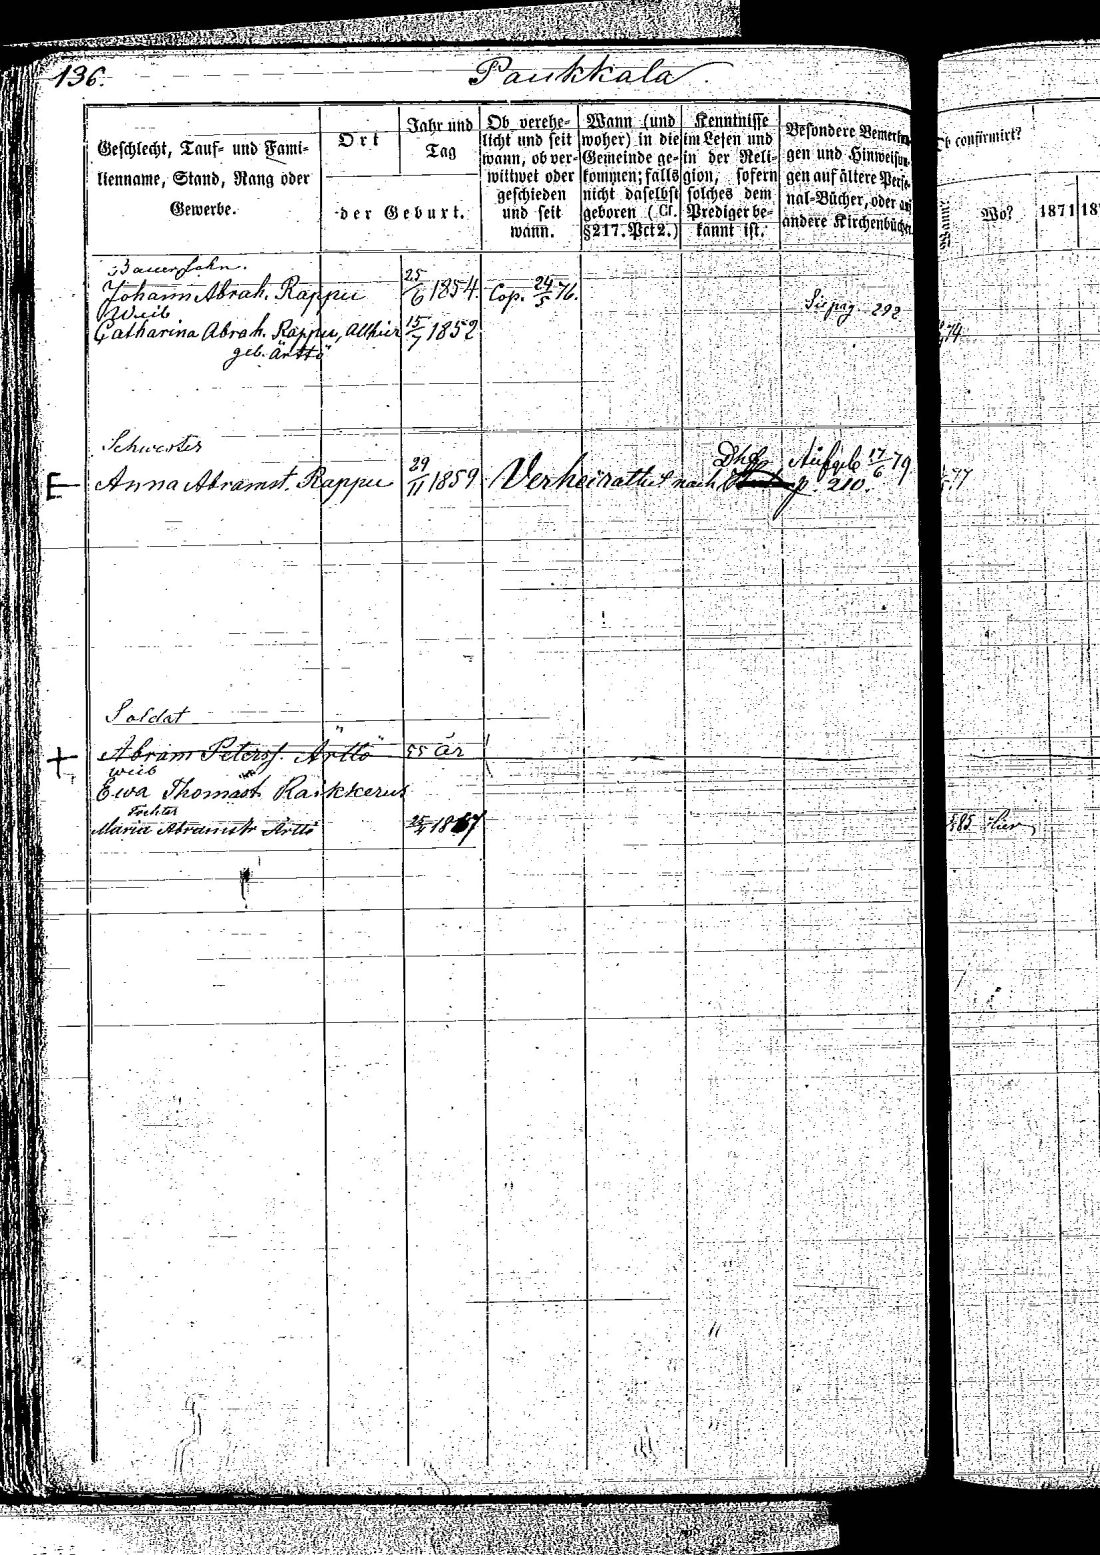 136.
Paukkala.
Geschlecht, Tauf- und Fami-
lienname, Stand, Rang oder
Gewerbe.
Ort
Jahr und
Tag
der Geburt.
Ob verehe-
licht und seit
wann, ob ver-
wittwet oder
geschieden
und seit
wann.
Wann (und
woher) in die
Gemeinde ge-
kommen; falls
nicht daselbst
geboren (Cf.
§ 217. Pct 2.)
Kenntnisse
im Lesen und
in der Reli-
gion, sofern
solches dem
Prediger be-
kannt ist.
Besondere Bemerkun-
gen und Hinweisun-
gen auf ältere Perso-
nal-Bücher, oder auf
andere Kirchenbücher
Ob confirmirt?
Wann?
Wo?
1871
Bauersohn.
Johann Abrah. Rappu 25/6 1854. Cop. 24/5 76.
Sie pag. 292
Weib
Catharina Abrah. Rappu, Allhier 15/7 1852 74
geb. Ärttö
Schwester
E Anna Abramst. Rappu 29/11 1859. Verheirathet nach p. 210. 77
Aufgeb 17/6 79
Soldat
+ Abram Peterss. Ärttö 55 år
weib
Ewa Thomast. Raikkerus
Tochter
Maria Abramstr Ärttö 1867 85 Hier